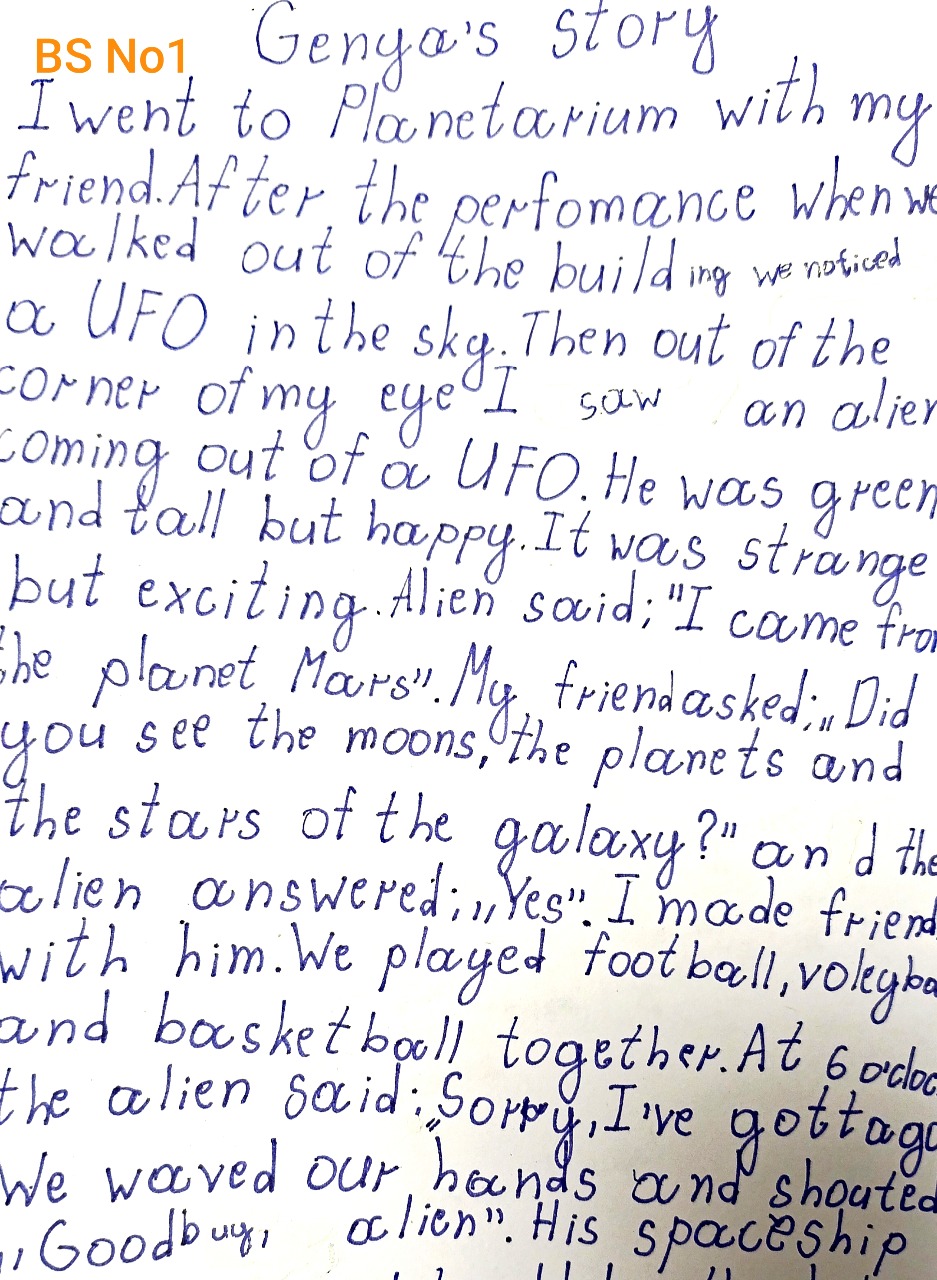 Genya's story
BS No1
I went to Planetarium with my
friend. After the perfomance when we
walked out of the building we noticed
a UFO in the sky. Then out of the
corner of my eye I saw an alien
coming out of a UFO. He was green
and tall but happy. It was strange
but exciting. Alien said; "I came from
the planet Mars". My friend asked; „Did
you see the moons, the planets and
the stars of the galaxy?" and the
alien answered; „Yes". I made friend
with him. We played football, voleyba
and basketball together. At 6 o'cloc
the alien said; „Sorry, I've gottago
We waved our hands and shouted
„Goodbuy, alien". His spaceship